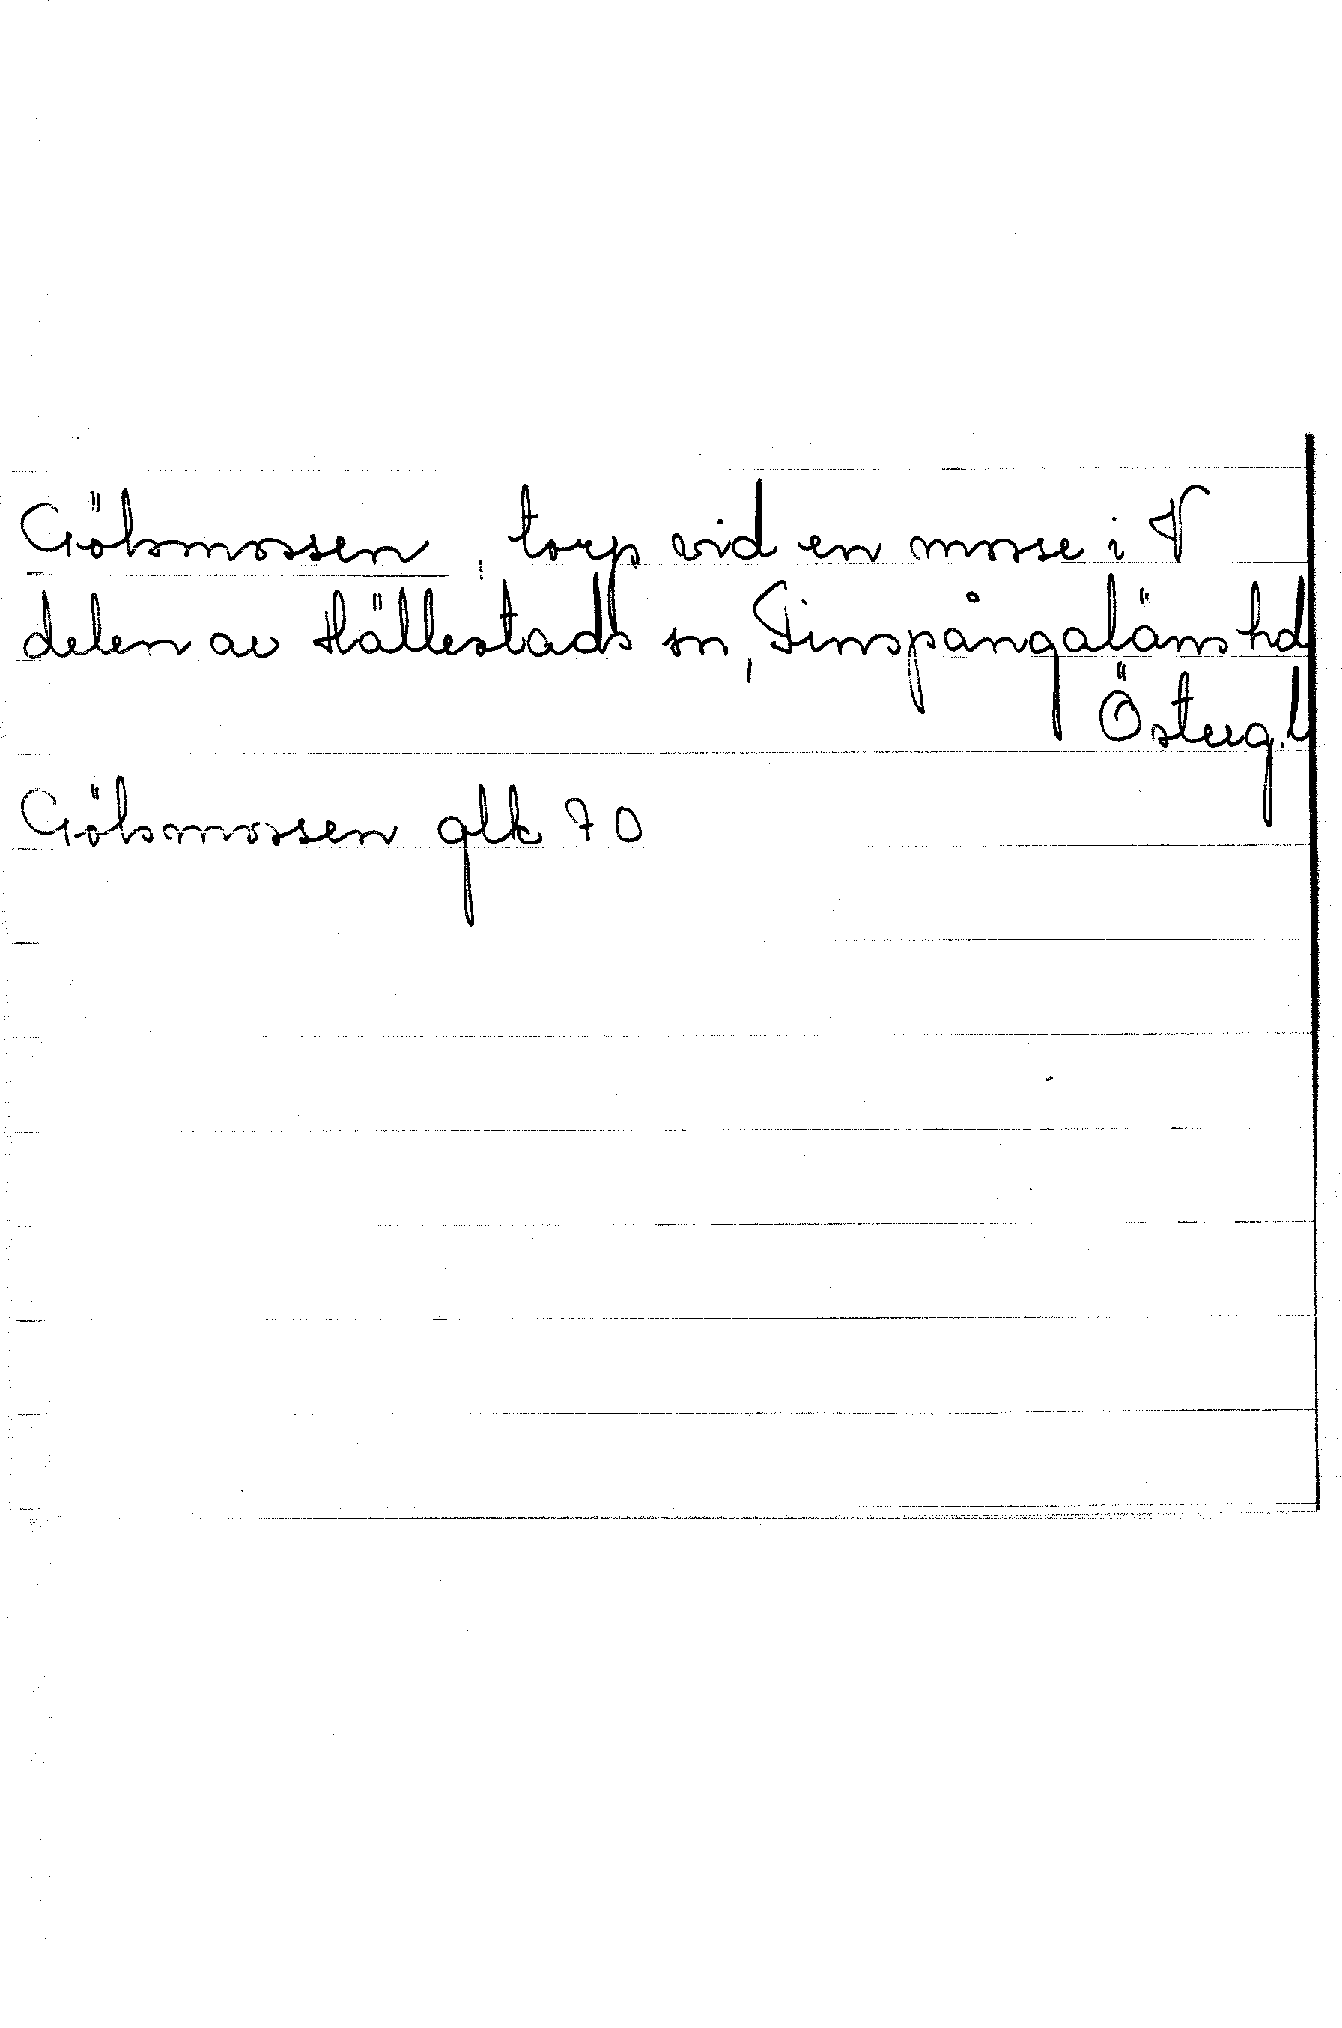 Gölsmossen, torp vid en mosse i V
delen av Hällestads sn, Finspångaläns hd
Österg. l
Gölsmossen glk 70